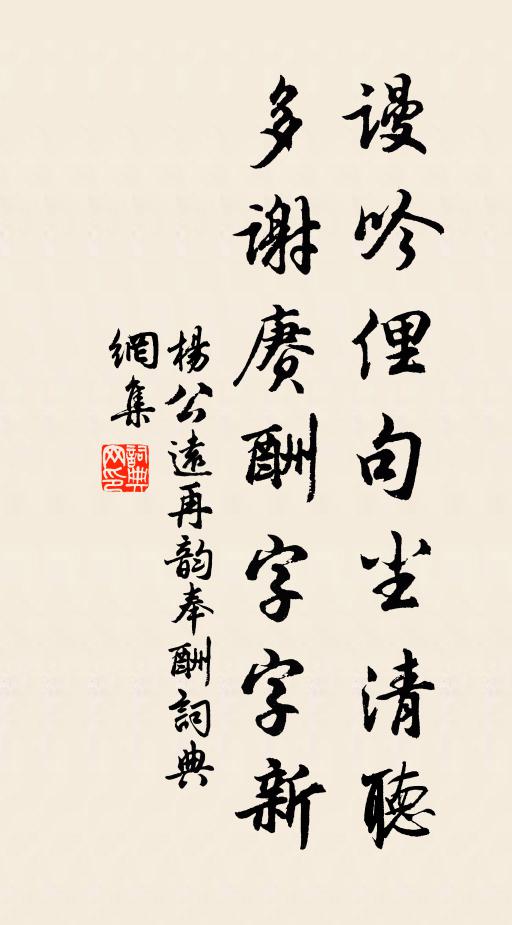 謾吟俚句尘清聽
多謝賡酬字字新
楊公遠再韵奉酬詞典
網集
詞典网印